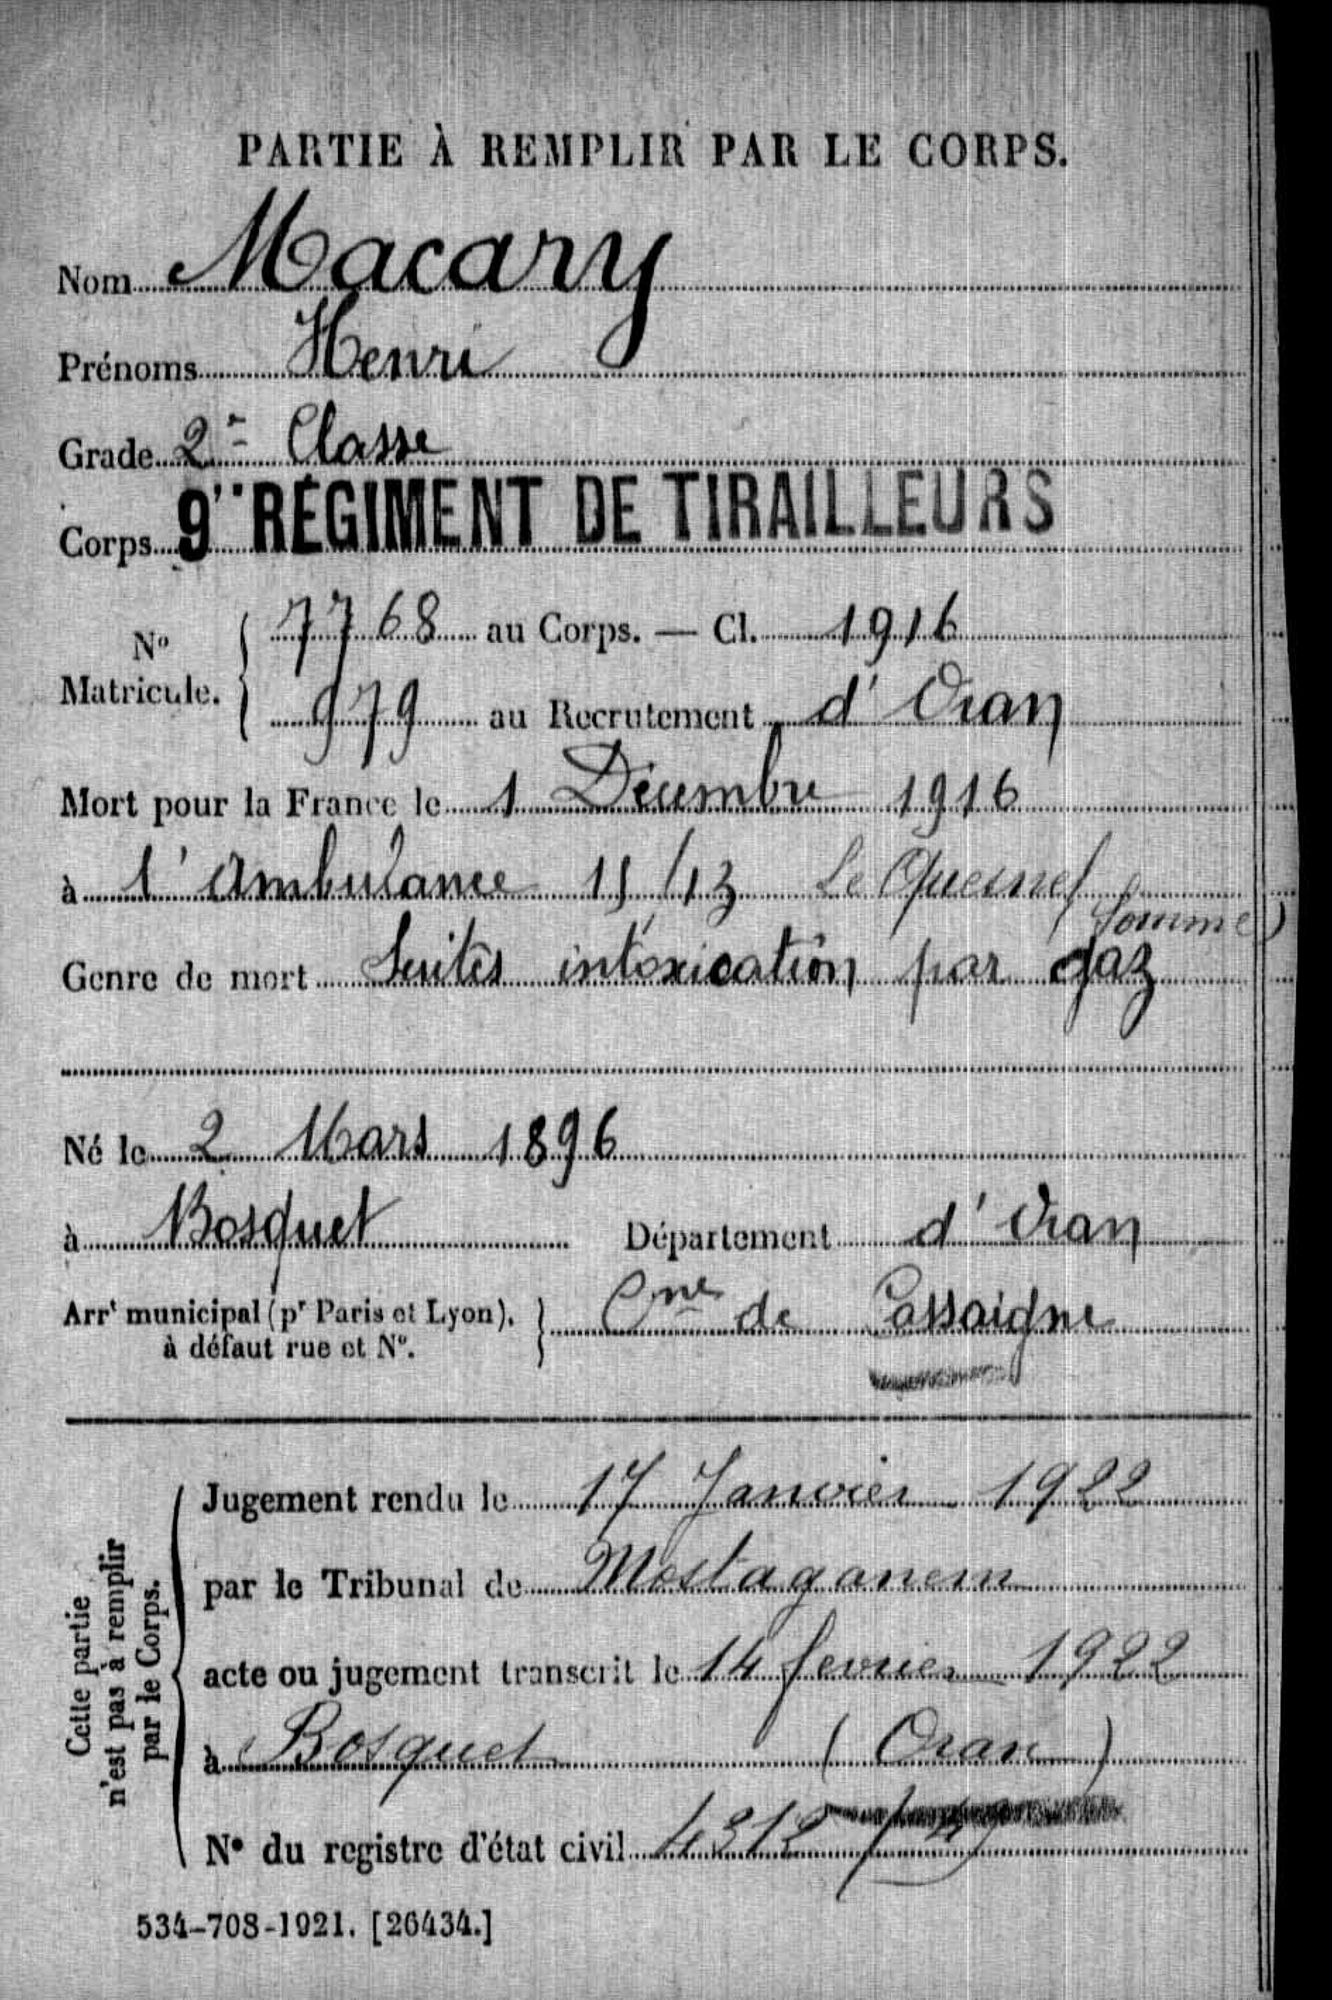 PARTIE À REMPLIR PAR LE CORPS.
Nom Macary
Prénoms Henri
Grade 2e Classe
Corps 9e RÉGIMENT DE TIRAILLEURS
No Matricule. { 7768 au Corps. — Cl. 1916
979 au Recrutement d'Oran
Mort pour la France le 1 Décembre 1916
à l'Ambulance 15/13 Le Quesnel
(Somme)
Genre de mort Suites intoxication par gaz
Né le 2 Mars 1896
à Bosquet Département d'Oran
Arrt municipal (pr Paris et Lyon), à défaut rue et No. } Cne de Cassaigne
Cette partie n'est pas à remplir par le Corps.
Jugement rendu le 17 Janvier 1922
par le Tribunal de Mostaganem
acte ou jugement transcrit le 14 fevrier 1922
à Bosquet (Oran)
No du registre d'état civil 4312
534-708-1921. [26434.]